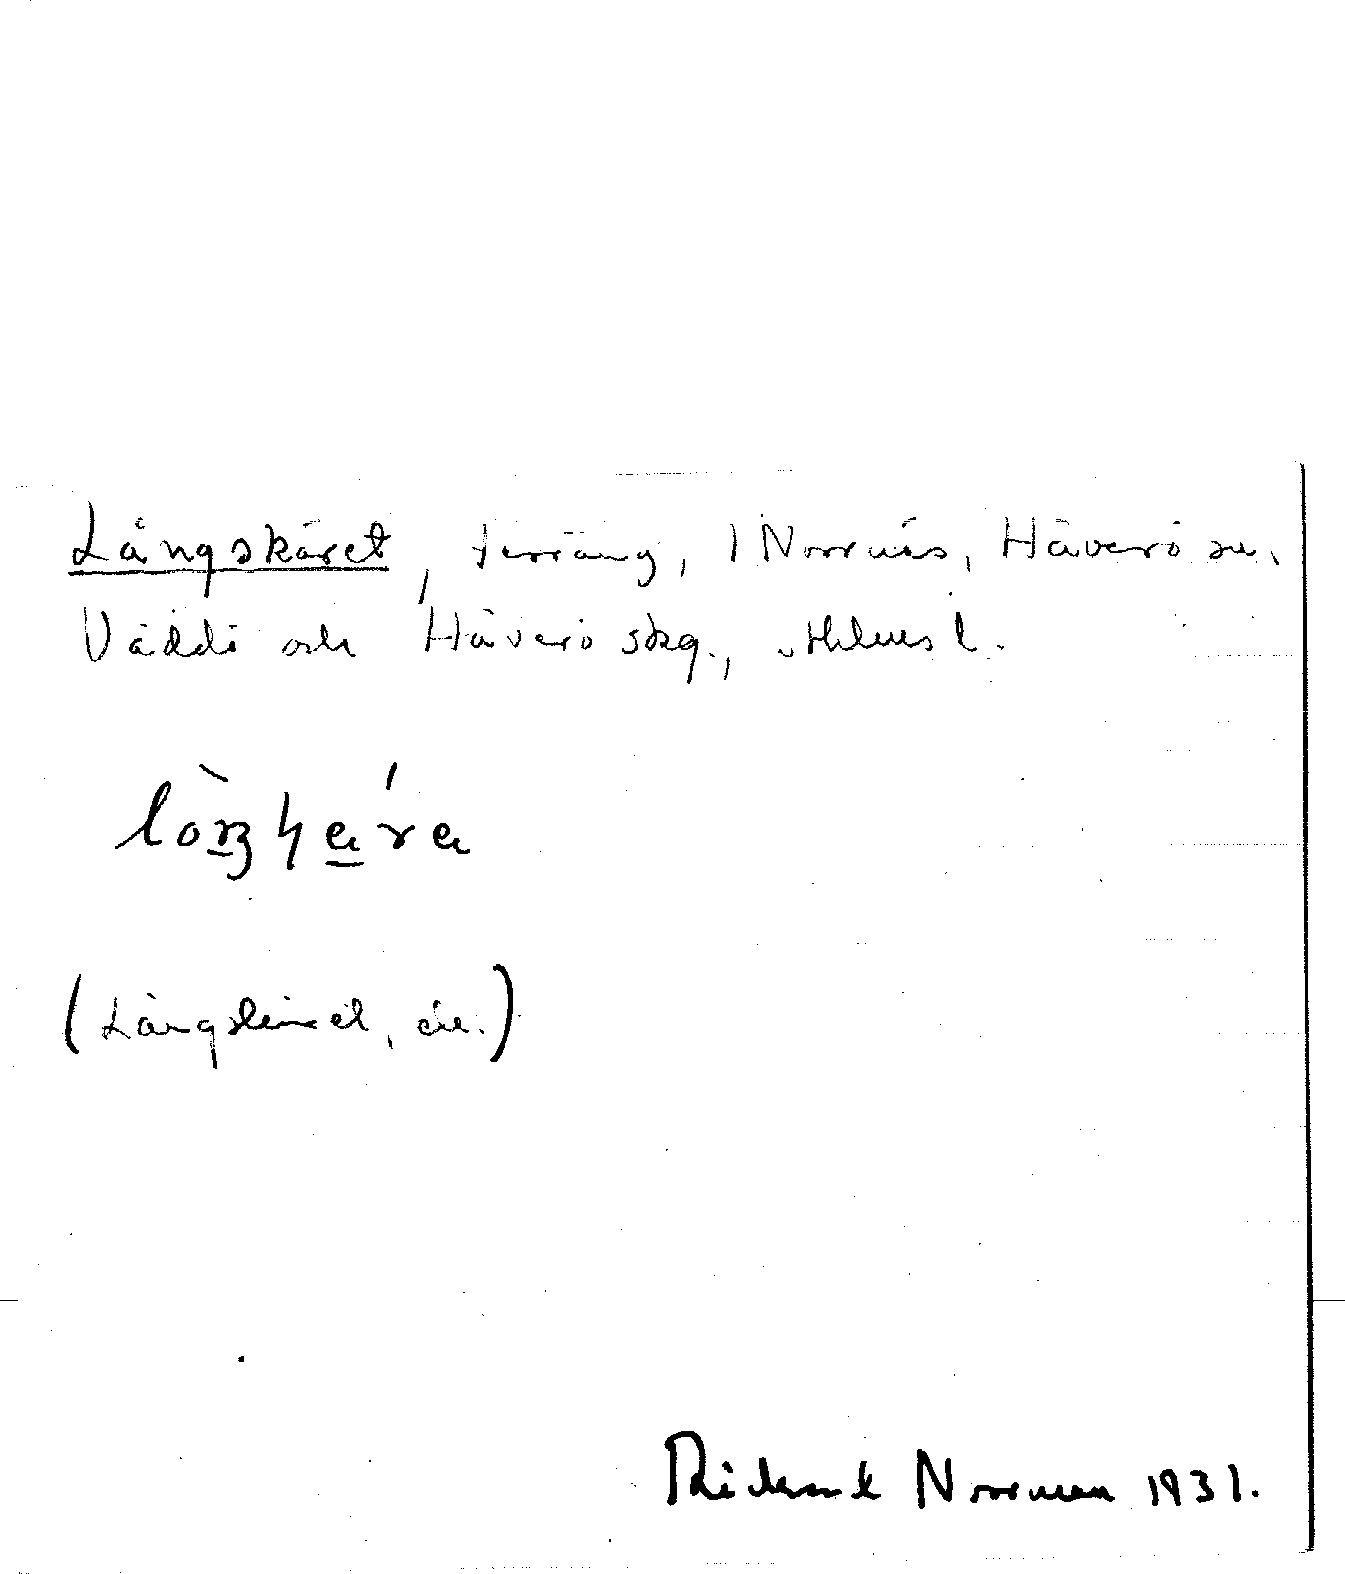 Långskäret, terräng, i Norrnäs, Häverö sn,
Väddö och Häverö skg., Sthlms l.
(Långskäret, 
Rickard Norrman 1931.